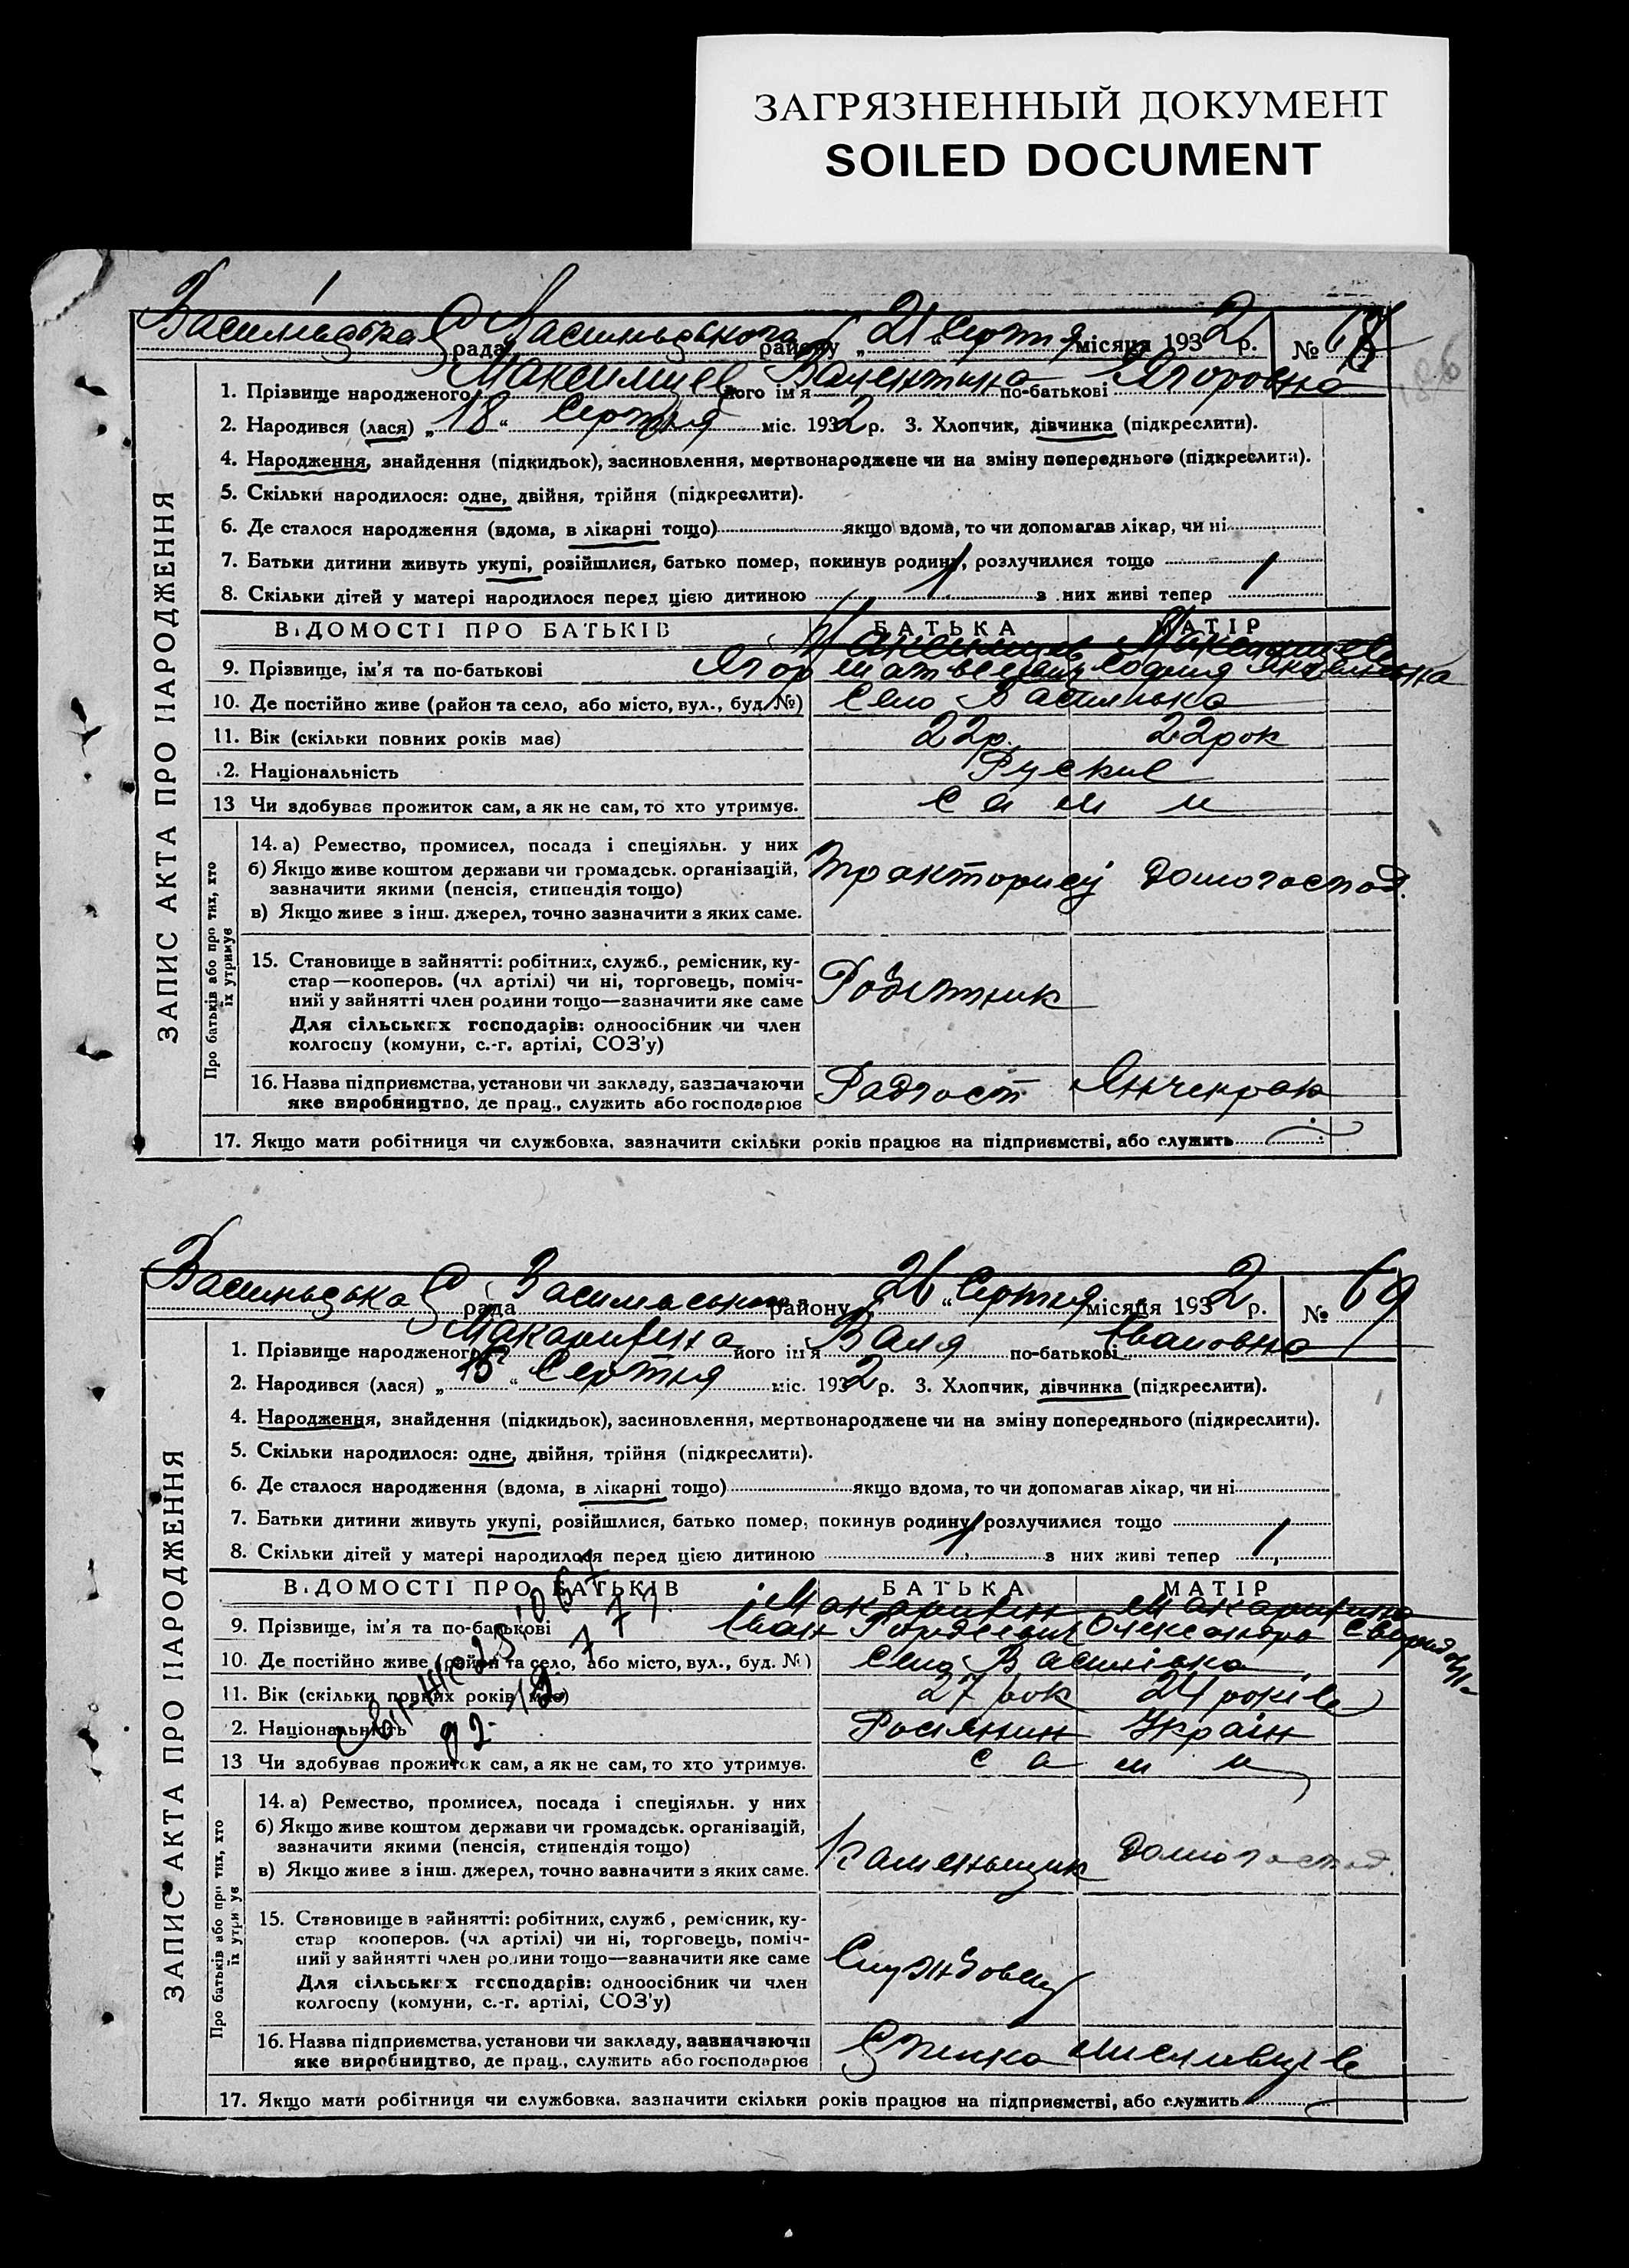 ЗАГРЯЗНЕННЫЙ ДОКУМЕНТ
SOILED DOCUMENT
рада району „ 21 " Серпня місяця 1932 р. № 68
1. Прізвище народженого його ім'я Валентина по-батькові Ягоровна
2. Народився (лася) „ 18 " Серпня міс. 1932 р. 3. Хлопчик, дівчинка (підкреслити).
4. Народження, знайдення (підкидьок), засиновлення, мертвонароджене чи на зміну попереднього (підкреслити).
5. Скільки народилося: одне, двійня, трійня (підкреслити).
6. Де сталося народження (вдома, в лікарні тощо) якщо вдома, то чи допомагав лікар, чи ні
7. Батьки дитини живуть укупі, розійшлися, батько помер, покинув родину, розлучилися тощо
8. Скільки дітей у матері народилося перед цією дитиною 1 з них живі тепер 1
ВІДОМОСТІ ПРО БАТЬКІВ БАТЬКА МАТІР
9. Прізвище, ім'я та по-батькові Ягор Матвеевич София Яковлевна
10. Де постійно живе (район та село, або місто, вул., буд. №) Село Василівка
11. Вік (скільки повних років має) 22р. 22рок
12. Національність Руские
13 Чи здобуває прожиток сам, а як не сам, то хто утримує. сами
14. а) Ремество, промисел, посада і спеціяльн. у них
б) Якщо живе коштом держави чи громадськ. організацій,
зазначити якими (пенсія, стипендія тощо)
в) Якщо живе з інш. джерел, точно зазначити з яких саме.
домогоспод.
15. Становище в зайнятті: робітник, служб., ремісник, ку-
стар—кооперов. (чл артілі) чи ні, торговець, поміч-
ний у зайнятті член родини тощо—зазначити яке саме
Для сільських господарів: одноосібник чи член
колгоспу (комуни, с.-г. артілі, СОЗ'у)
Робітник
16. Назва підприємства, установи чи закладу, зазначаючи
яке виробництво, де прац., служить або господарює
Радгосп Янчекрак
17. Якщо мати робітниця чи службовка, зазначити скільки років працює на підприємстві, або служить
ЗАПИС АКТА ПРО НАРОДЖЕННЯ
Про батьків або про тих, хто
їх утримує
рада району „ 26 " Серпня місяця 1932 р. № 69
1. Прізвище народженого його ім'я Валя по-батькові Івановна
2. Народився (лася) „ 15 " Серпня міс. 1932 р. 3. Хлопчик, дівчинка (підкреслити).
4. Народження, знайдення (підкидьок), засиновлення, мертвонароджене чи на зміну попереднього (підкреслити).
5. Скільки народилося: одне, двійня, трійня (підкреслити).
6. Де сталося народження (вдома, в лікарні тощо) якщо вдома, то чи допомагав лікар, чи ні
7. Батьки дитини живуть укупі, розійшлися, батько помер, покинув родину, розлучилися тощо
8. Скільки дітей у матері народилося перед цією дитиною 1 з них живі тепер 1
ВІДОМОСТІ ПРО БАТЬКІВ БАТЬКА МАТІР
9. Прізвище, ім'я та по-батькові Іван Олександра
10. Де постійно живе (район та село, або місто, вул., буд. №) Село Василівка
11. Вік (скільки повних років має) 27 рок 24 років
12. Національність Росіянин Україн
13 Чи здобуває прожиток сам, а як не сам, то хто утримує. сами
14. а) Ремество, промисел, посада і спеціяльн. у них
б) Якщо живе коштом держави чи громадськ. організацій,
зазначити якими (пенсія, стипендія тощо)
в) Якщо живе з інш. джерел, точно зазначити з яких саме.
Каменьщик домогоспод.
15. Становище в зайнятті: робітник, служб., ремісник, ку-
стар кооперов. (чл артілі) чи ні, торговець, поміч-
ний у зайнятті член родини тощо—зазначити яке саме
Для сільських господарів: одноосібник чи член
колгоспу (комуни, с.-г. артілі, СОЗ'у)
16. Назва підприємства, установи чи закладу, зазначаючи
яке виробництво, де прац., служить або господарює
Спілка мисливців
17. Якщо мати робітниця чи службовка, зазначити скільки років працює на підприємстві, або служить
ЗАПИС АКТА ПРО НАРОДЖЕННЯ
Про батьків або про тих, хто
їх утримує